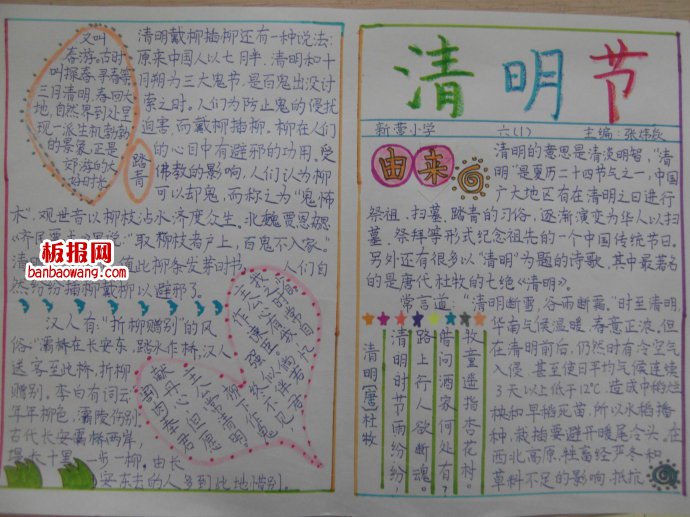 又叫
春游。古时
叫探春、寻春等。
三月清明，春回大
地，自然界到处呈
现一派生机勃勃
的景象，正是
郊游的大
好时光
踏青
清明戴柳插柳还有一种说法：
原来中国人以七月半、清明和十
月朔为三大鬼节，是百鬼出没讨
索之时。人们为防止鬼的侵扰
迫害，而戴柳插柳。柳在人们
的心目中有避邪的功用。受
佛教的影响，人们认为柳
可以却鬼，而称之为“鬼怖
木”，观世音以柳枝沾水济度众生。北魏贾思勰
《齐民要术》里说：“取柳枝著户上，百鬼不入家。”
值此柳条发芽时节，人们自
然纷纷插柳戴柳以避邪了。
板报网
banbaowang.com
汉人有“折柳赠别”的风
俗：“灞桥在长安东，跨水作桥，汉人
送客至此桥，折柳
赠别。李白有词云：
年年柳色，灞陵伤别。
古代长安灞桥两岸，
堤长十里，一步一柳，由长
安东去的人多到此地惜别，
清明节
新萤小学
六(1)
主编：张
由来
清明的意思是清淡明智，“清
明”是夏历二十四节气之一，中国
广大地区有在清明之日进行
祭祖、扫墓、踏青的习俗，逐渐演变为华人以扫
墓、祭拜等形式纪念祖先的一个中国传统节日。
另外还有很多以“清明”为题的诗歌，其中最著名
的是唐代杜牧的七绝《清明》。
常言道：“清明断雪，谷雨断霜。”时至清明，
华南气候温暖，春意正浓。但
在清明前后，仍然时有冷空气
入侵，甚至使日平均气候连续
3天以上低于12℃，造成中稻烂
秧和早稻死苗，所以水稻播
种、栽插要避开暖尾冷头。在
西北高原，牲畜经严冬和
草料不足的影响，抵抗
清明[唐]杜牧
清明时节雨纷纷，
路上行人欲断魂。
借问酒家何处有，
牧童遥指杏花村。